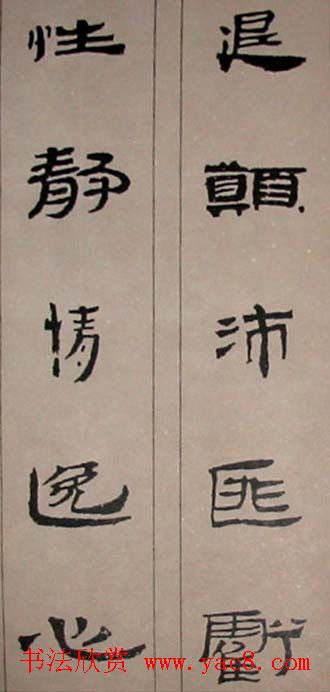 退顛沛匪虧
性静情逸心
书法欣赏 www.yac8.com